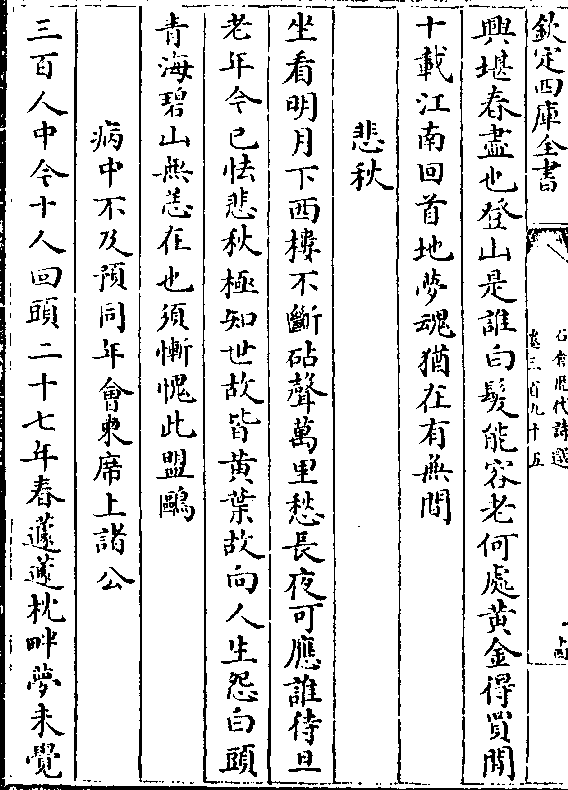 欽定四庫全書
石倉歷代詩選
卷三百九十五
興堪春盡也登山是誰白髮能容老何處黃金得買閒
十載江南回首地夢魂猶在有無間
悲秋
坐看明月下西樓不斷砧聲萬里愁長夜可應誰待旦
老年今已怯悲秋極知世故皆黃葉故向人生怨白頭
青海碧山無恙在也須慚愧此盟鷗
病中不及預同年會柬席上諸公
三百人中今十人回頭二十七年春蘧蘧枕畔夢未覺